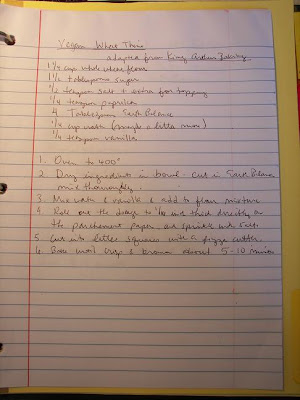 Vegan Wheat Thins
adapted from King Arthur Baking
1 1/4 cup whole wheat flour
1 1/2 tablespoons sugar
1/2 teaspoon salt + extra for topping
1/4 teaspoon paprika
4 Tablespoons Earth Balance
1/4 cup water (maybe a little more)
1/4 teaspoon vanilla
1. Oven to 400°
2. Dry ingredients in bowl. Cut in Earth Balance
mix thoroughly.
3. Mix water & vanilla & add to flour mixture
4. Roll out the dough to 1/16 inch thick directly on
the parchement paper, and sprinkle with salt.
5. Cut into little squares with a pizza cutter.
6. Bake until crisp & brown about 5-10 minutes